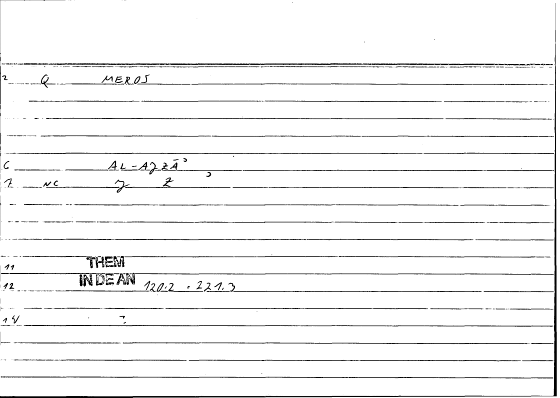 2 Q MEROS
6 AL-AJZĀʾ
7 NC J Z ʾ
11 THEM
12 IN DE AN 120.2 - 221.3
14 7.